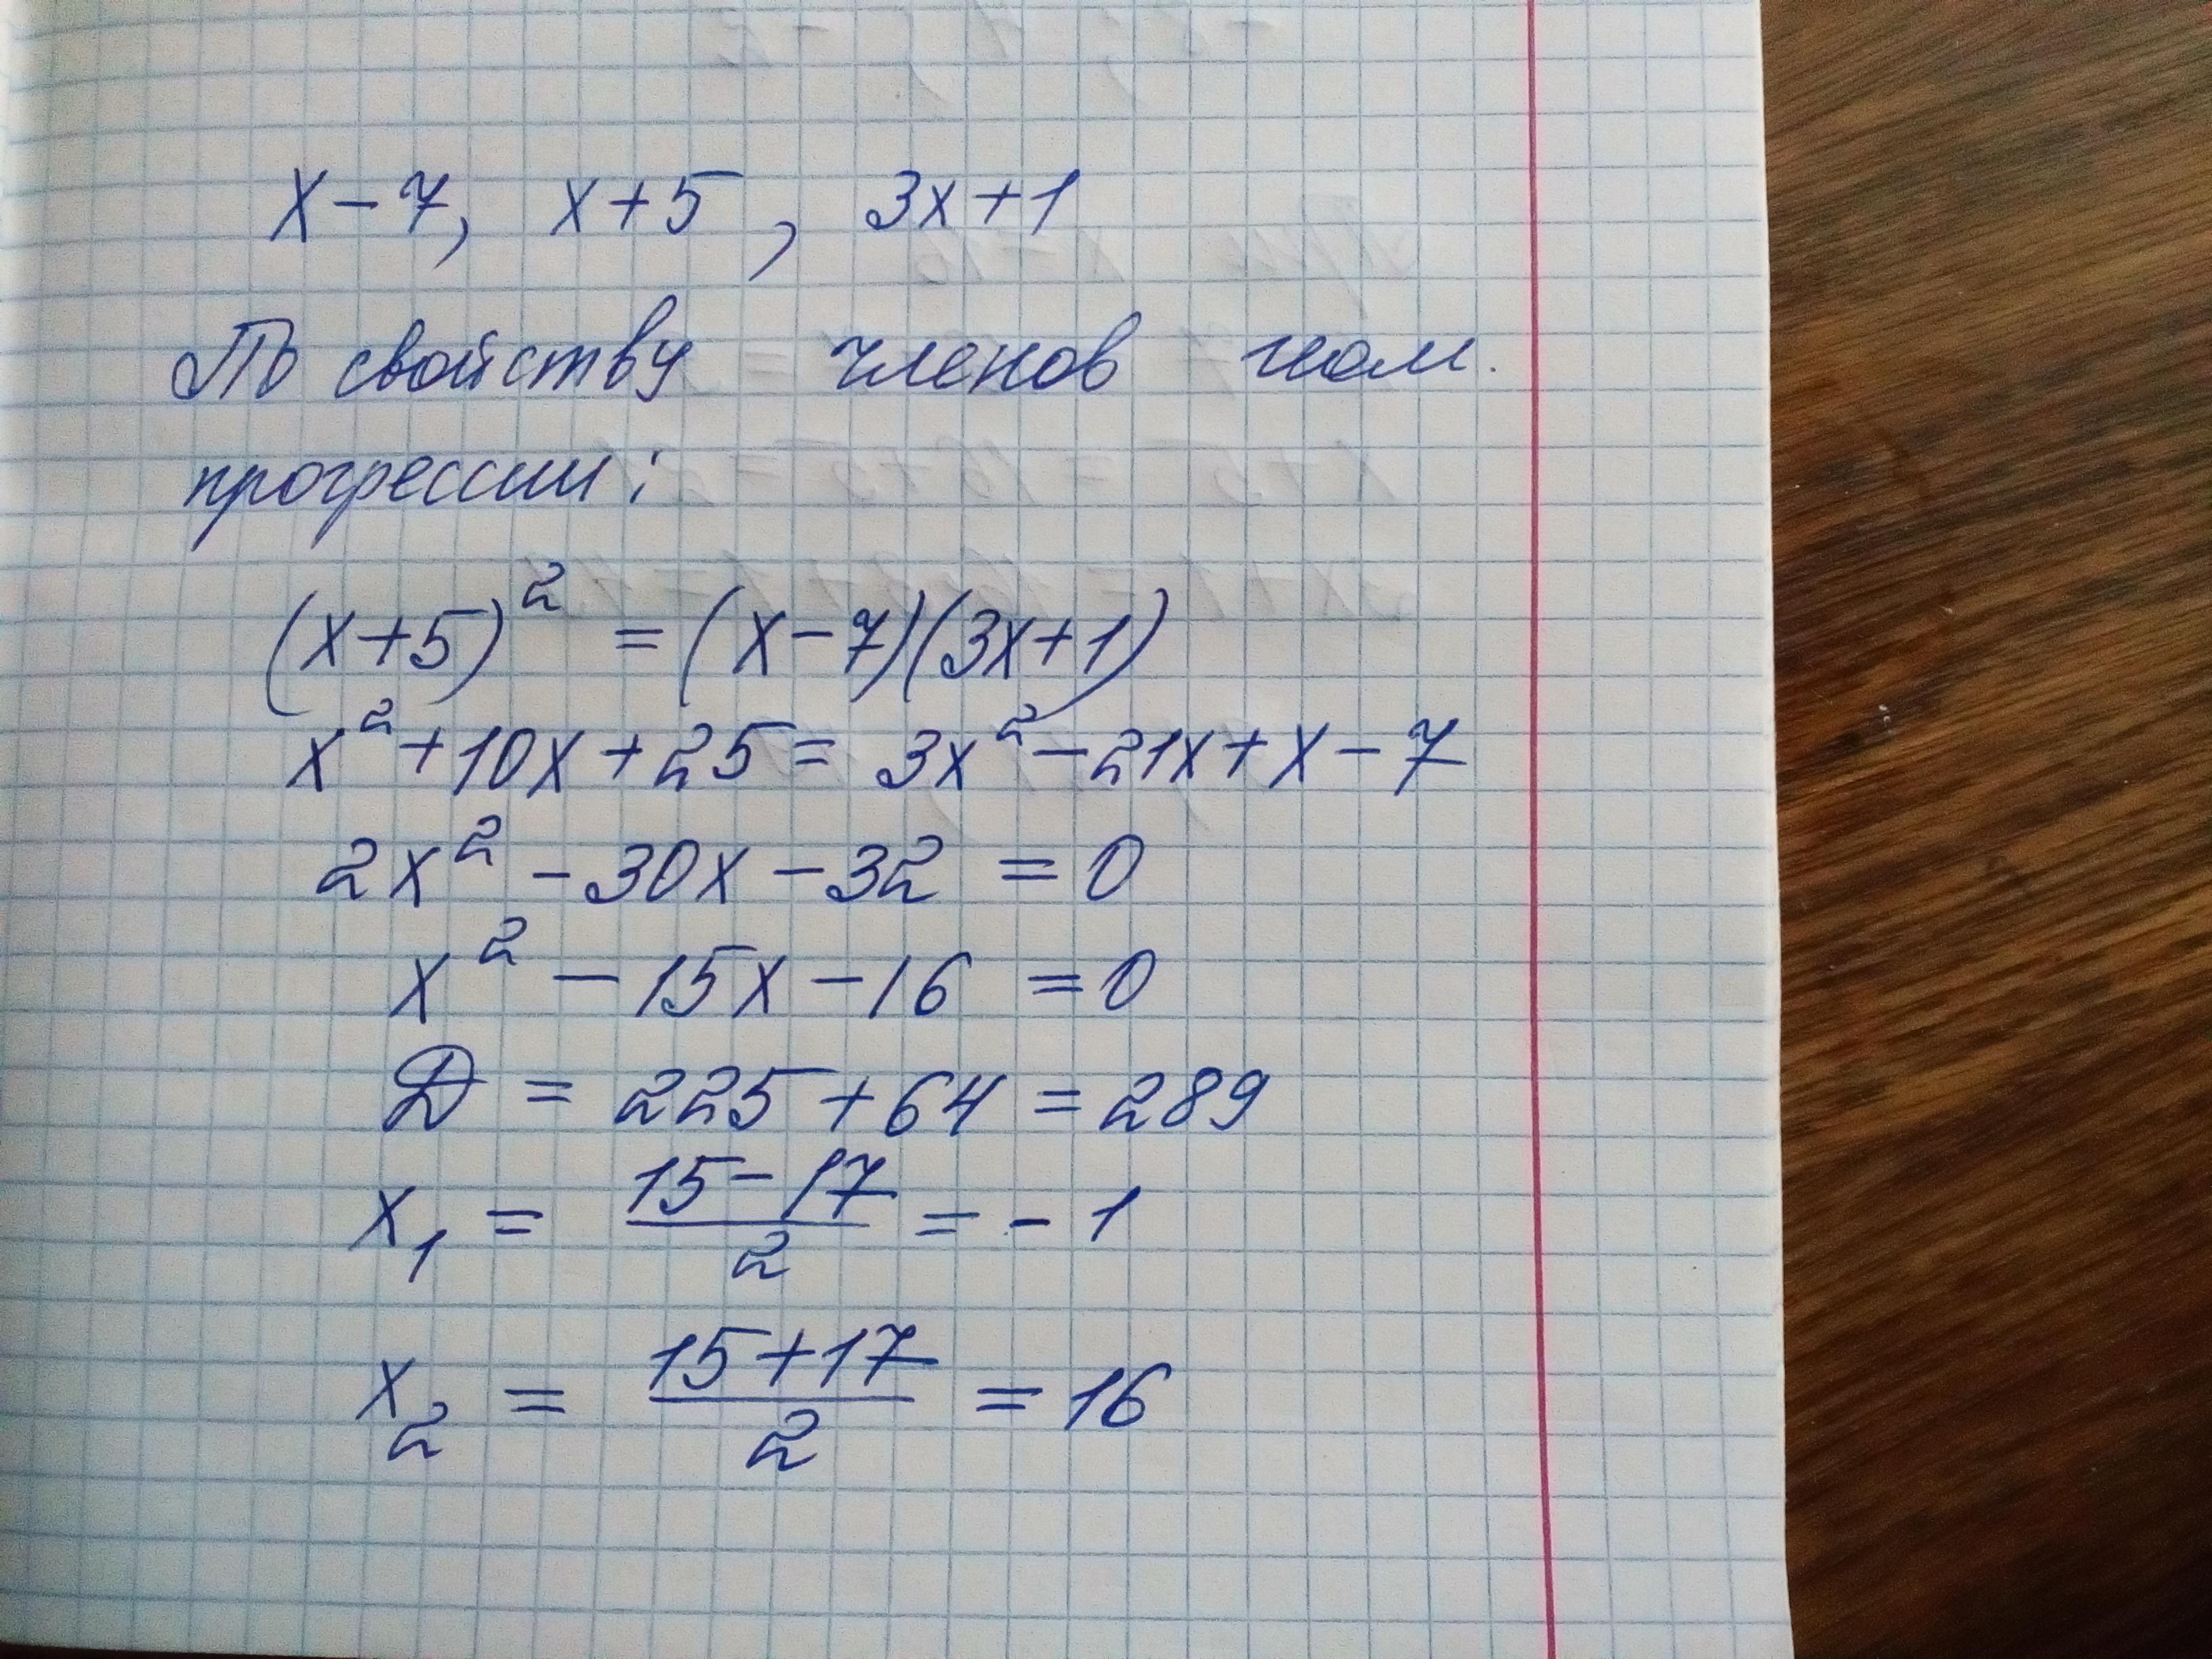 x-7, x+5, 3x+1
По свойству членов геом.
прогрессии:
(x+5)² = (x-7)(3x+1)
x²+10x+25 = 3x²-21x+x-7
2x²-30x-32 = 0
x²-15x-16 = 0
Д = 225+64 = 289
x₁ = (15-17)/2 = -1
x₂ = (15+17)/2 = 16